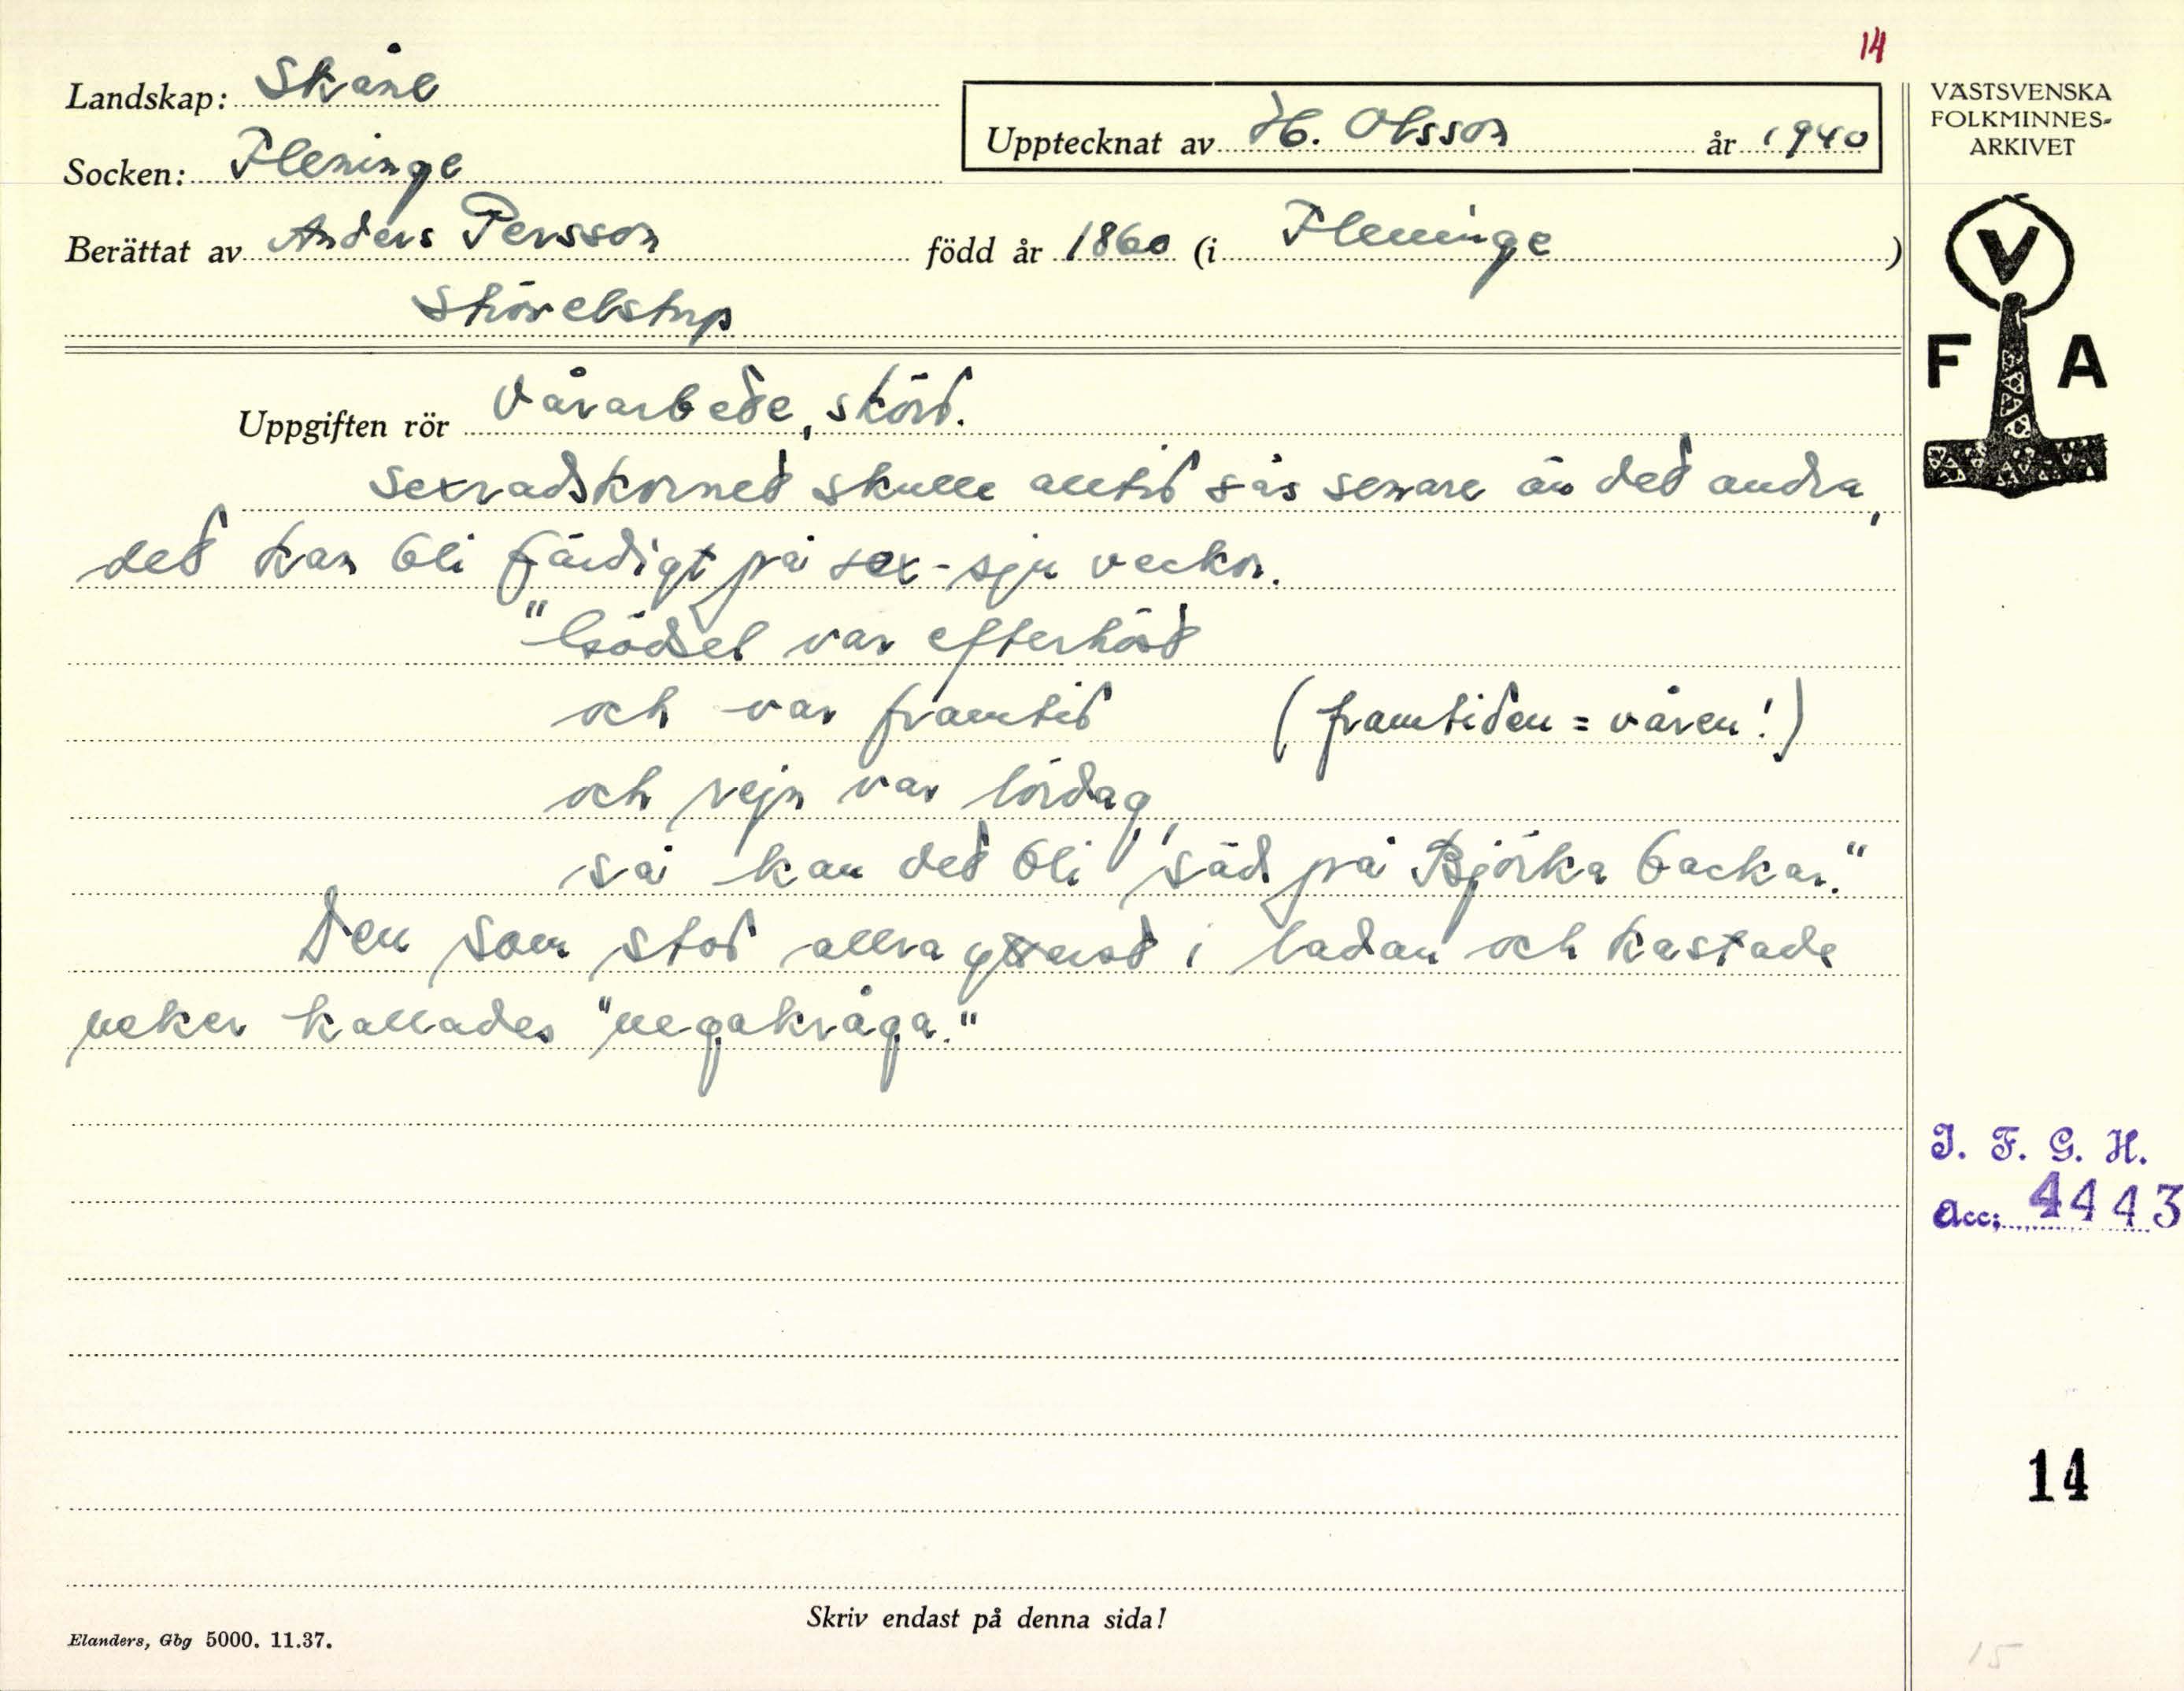 14
Landskap: Skåne
Upptecknat av H. Olsson år 1940
Socken: Fleninge
Berättat av Anders Persson född år 1860 (i Fleninge)
Stövelstup
Uppgiften rör Vårarbete, skörd.
Sexradskornet skulle alltid sås senare än det andra,
det kan bli färdigt på sex-sju veckor.
"Gödsel var efterhöst
och var framtid (framtiden = våren!)
och rejn var lördag,
så kan det bli säd på Björka backar."
Den som stod allra i ladan och kastade
neker kallades "negakråga."
Skriv endast på denna sida!
Elanders, Gbg 5000. 11.37.
VÄSTSVENSKA
FOLKMINNES-
ARKIVET
V
F A
I. F. G. H.
Acc: 4443
14
15